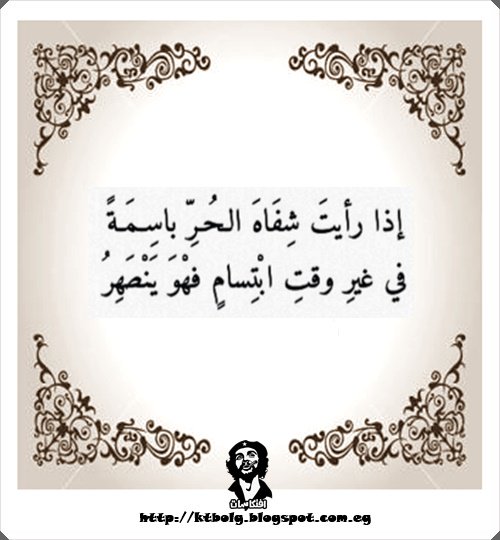 إذا رأيتَ شِفَاهَ الحُرِّ باسِمَةً
في غيرِ وقتِ ابْتِسامٍ فهْوَ يَنْصَهِرُ
افتكاسات
http://ktbolg.blogspot.com.eg